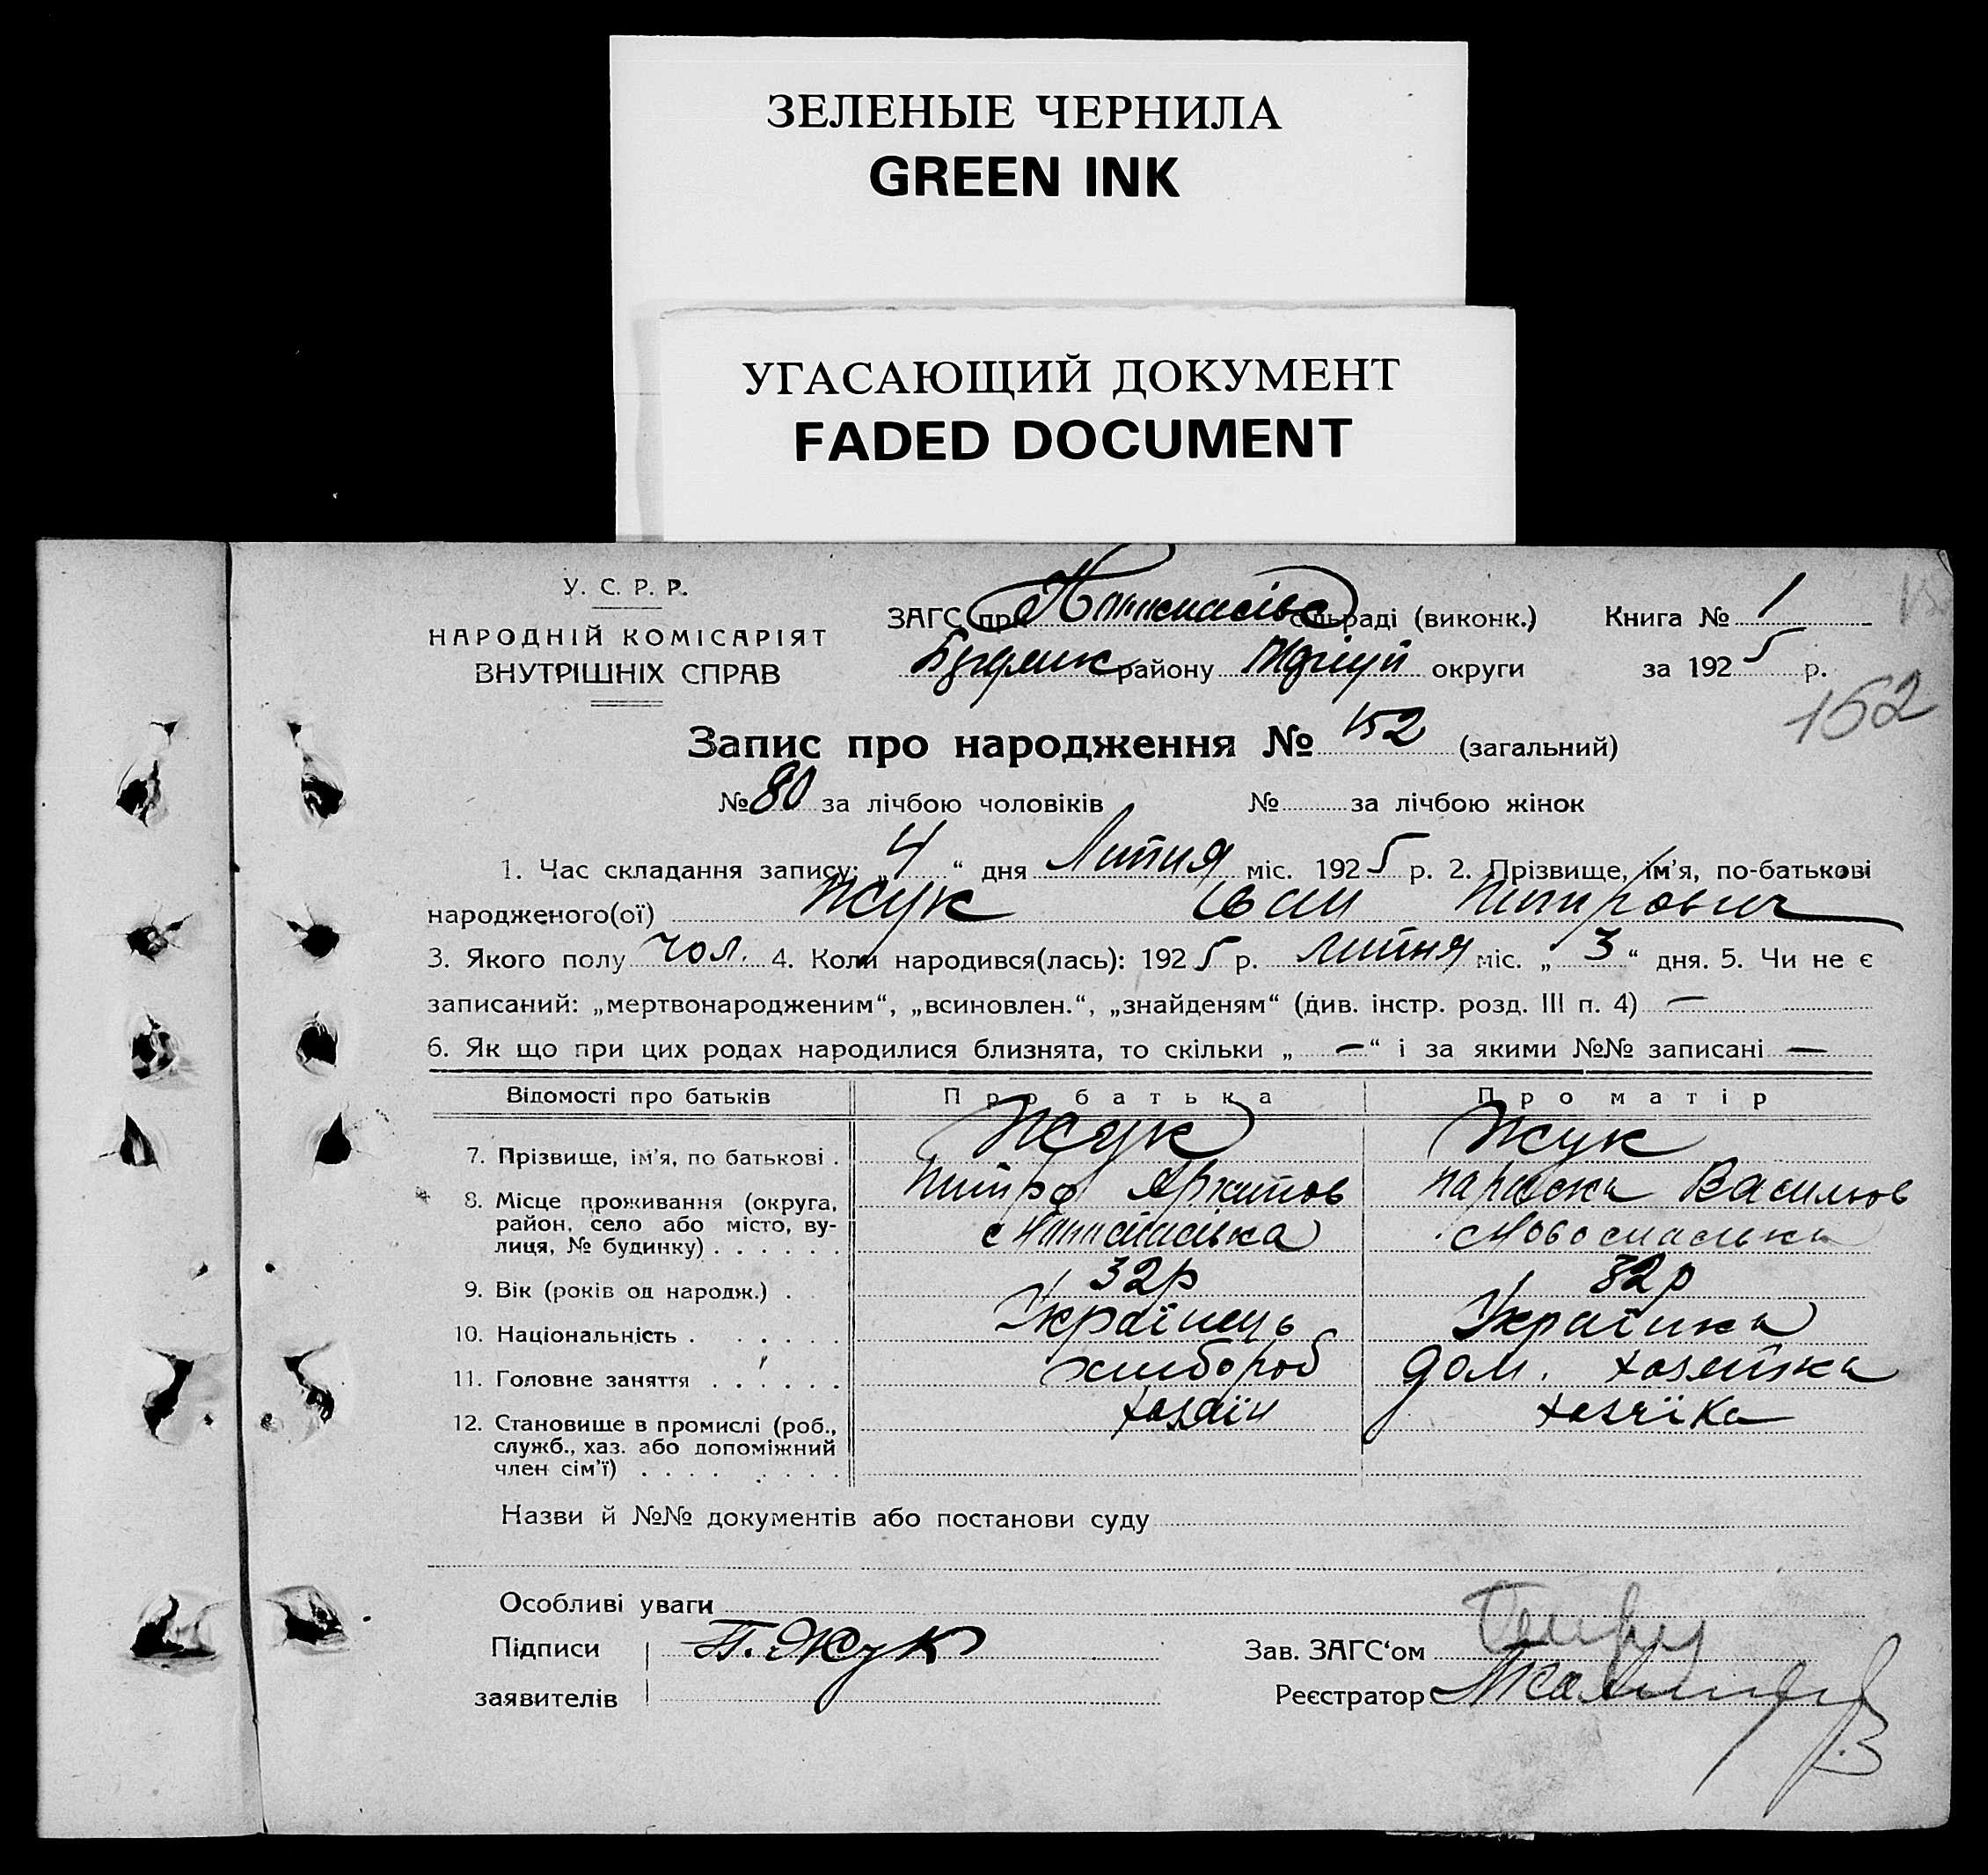 ЗЕЛЕНЫЕ ЧЕРНИЛА
GREEN INK
УГАСАЮЩИЙ ДОКУМЕНТ
FADED DOCUMENT
У. С. Р. Р.
НАРОДНІЙ КОМІСАРІЯТ
ВНУТРІШНІХ СПРАВ
ЗАГС при сільраді (виконк.) Книга № 1
району округи за 1925 р.
152
Запис про народження № 152 (загальний)
№ 80 за лічбою чоловіків № за лічбою жінок
1. Час складання запису: „4“ дня Липня міс. 1925 р. 2. Прізвище, ім'я, по-батькові
народженого(ої) Жук Іван Питрович
3. Якого полу чол. 4. Коли народився(лась): 1925 р. Липня міс. „3“ дня. 5. Чи не є
записаний: „мертвонародженим“, „всиновлен.“, „знайденям“ (див. інстр. розд. III п. 4) —
6. Як що при цих родах народилися близнята, то скільки „—“ і за якими №№ записані —
Відомості про батьків Про батька Про матір
7. Прізвище, ім'я, по батькові . Жук Жук
Питро Архипов Параска Васильов
8. Місце проживання (округа,
район, село або місто, ву-
лиця, № будинку) . . . . . . Новоспаська
9. Вік (років од народж.) . 32р 32р
10. Національність . . . . Українець Українка
11. Головне заняття . . . . . . хлибороб дом. хозяйка
12. Становище в промислі (роб., хазяїн хазяїка
служб., хаз. або допоміжний
член сім'ї) . . . . . . . .
Назви й №№ документів або постанови суду
Особливі уваги
Підписи П. Жук Зав. ЗАГС'ом
заявителів Реєстратор